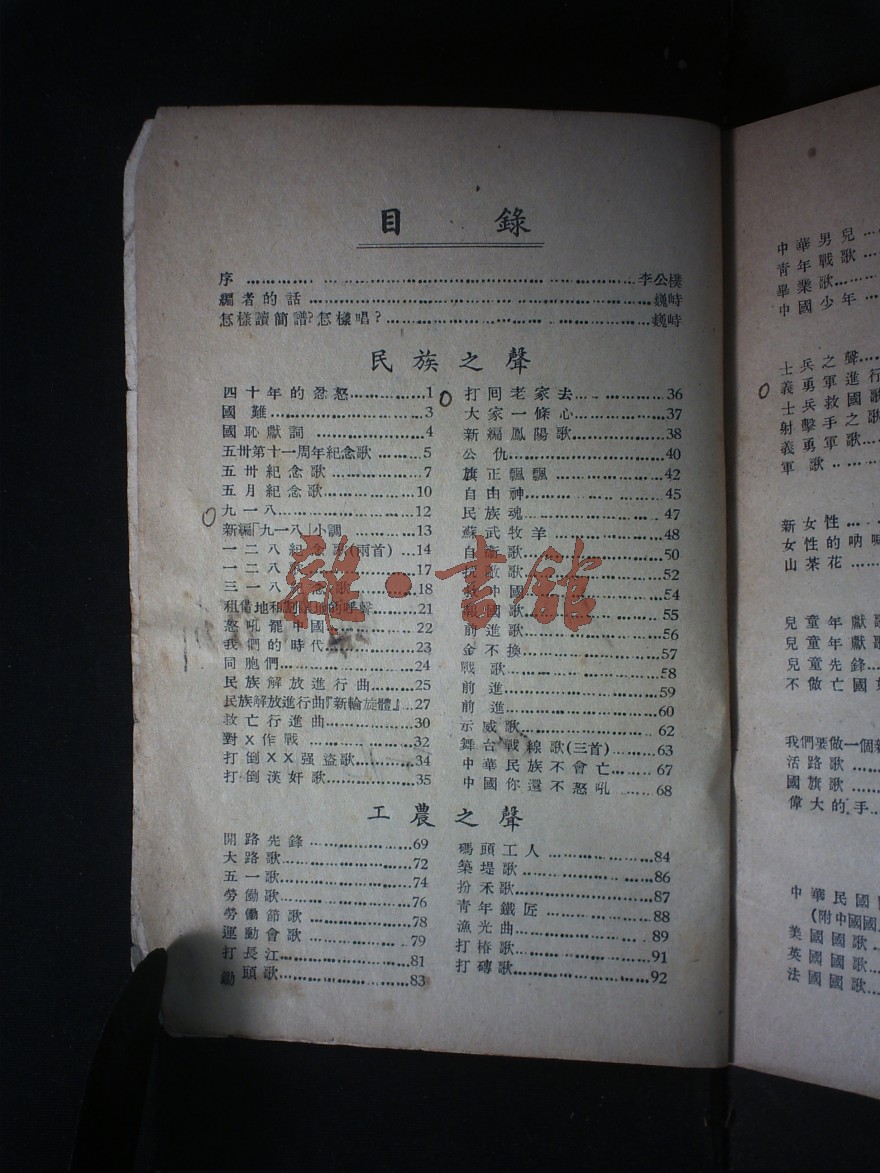 目錄
序…………李公樸
編者的話…………巍峙
怎樣讀簡譜?怎樣唱?…………巍峙
民族之聲
四十年的忿怒…………1
國難…………3
國恥獻詞…………4
五卅第十一周年紀念歌…………5
五卅紀念歌…………7
五月紀念歌…………10
九一八…………12
新編「九一八」小調…………13
一二八紀念歌(兩首)…14
一二八…………17
三一八紀念歌…………18
租借地和割讓地的呼聲…………21
怒吼罷中國…………22
我們的時代…………23
同胞們…………24
民族解放進行曲…………25
民族解放進行曲『新輪旋體』…27
救亡行進曲…………30
對X作戰…………32
打倒XX强盗歌…………34
打倒漢奸歌…………35
打囘老家去…………36
大家一條心…………37
新編鳳陽歌…………38
公仇…………40
旗正飄飄…………42
自由神…………45
民族魂…………47
蘇武牧羊…………48
自衛歌…………50
敵歌…………52
中國…………54
國歌…………55
前進歌…………56
金不換…………57
戰歌…………58
前進…………59
前進…………60
示威歌…………62
舞台戰線歌(三首)…………63
中華民族不會亡…………67
中國你還不怒吼…………68
工農之聲
開路先鋒…………69
大路歌…………72
五一歌…………74
勞働歌…………76
勞働節歌…………78
運動會歌…………79
打長江…………81
鋤頭歌…………83
碼頭工人…………84
築堤歌…………86
扮禾歌…………87
青年鐵匠…………88
漁光曲…………89
打樁歌…………91
打磚歌…………92
中華男兒…
青年戰歌…
畢業歌…………
中國少年…
士兵之聲…
義勇軍進行
士兵救國歌
射擊手之歌
義勇軍歌…
軍歌…
新女性…
女性的呐喊
山茶花…
兒童年獻歌
兒童年獻歌
兒童先鋒…
不做亡國奴
我們要做一個新
活路歌…
國旗歌…
偉大的手…
中華民國
(附中國國
美國國歌…
英國國歌…
法國國歌…
雜·書館